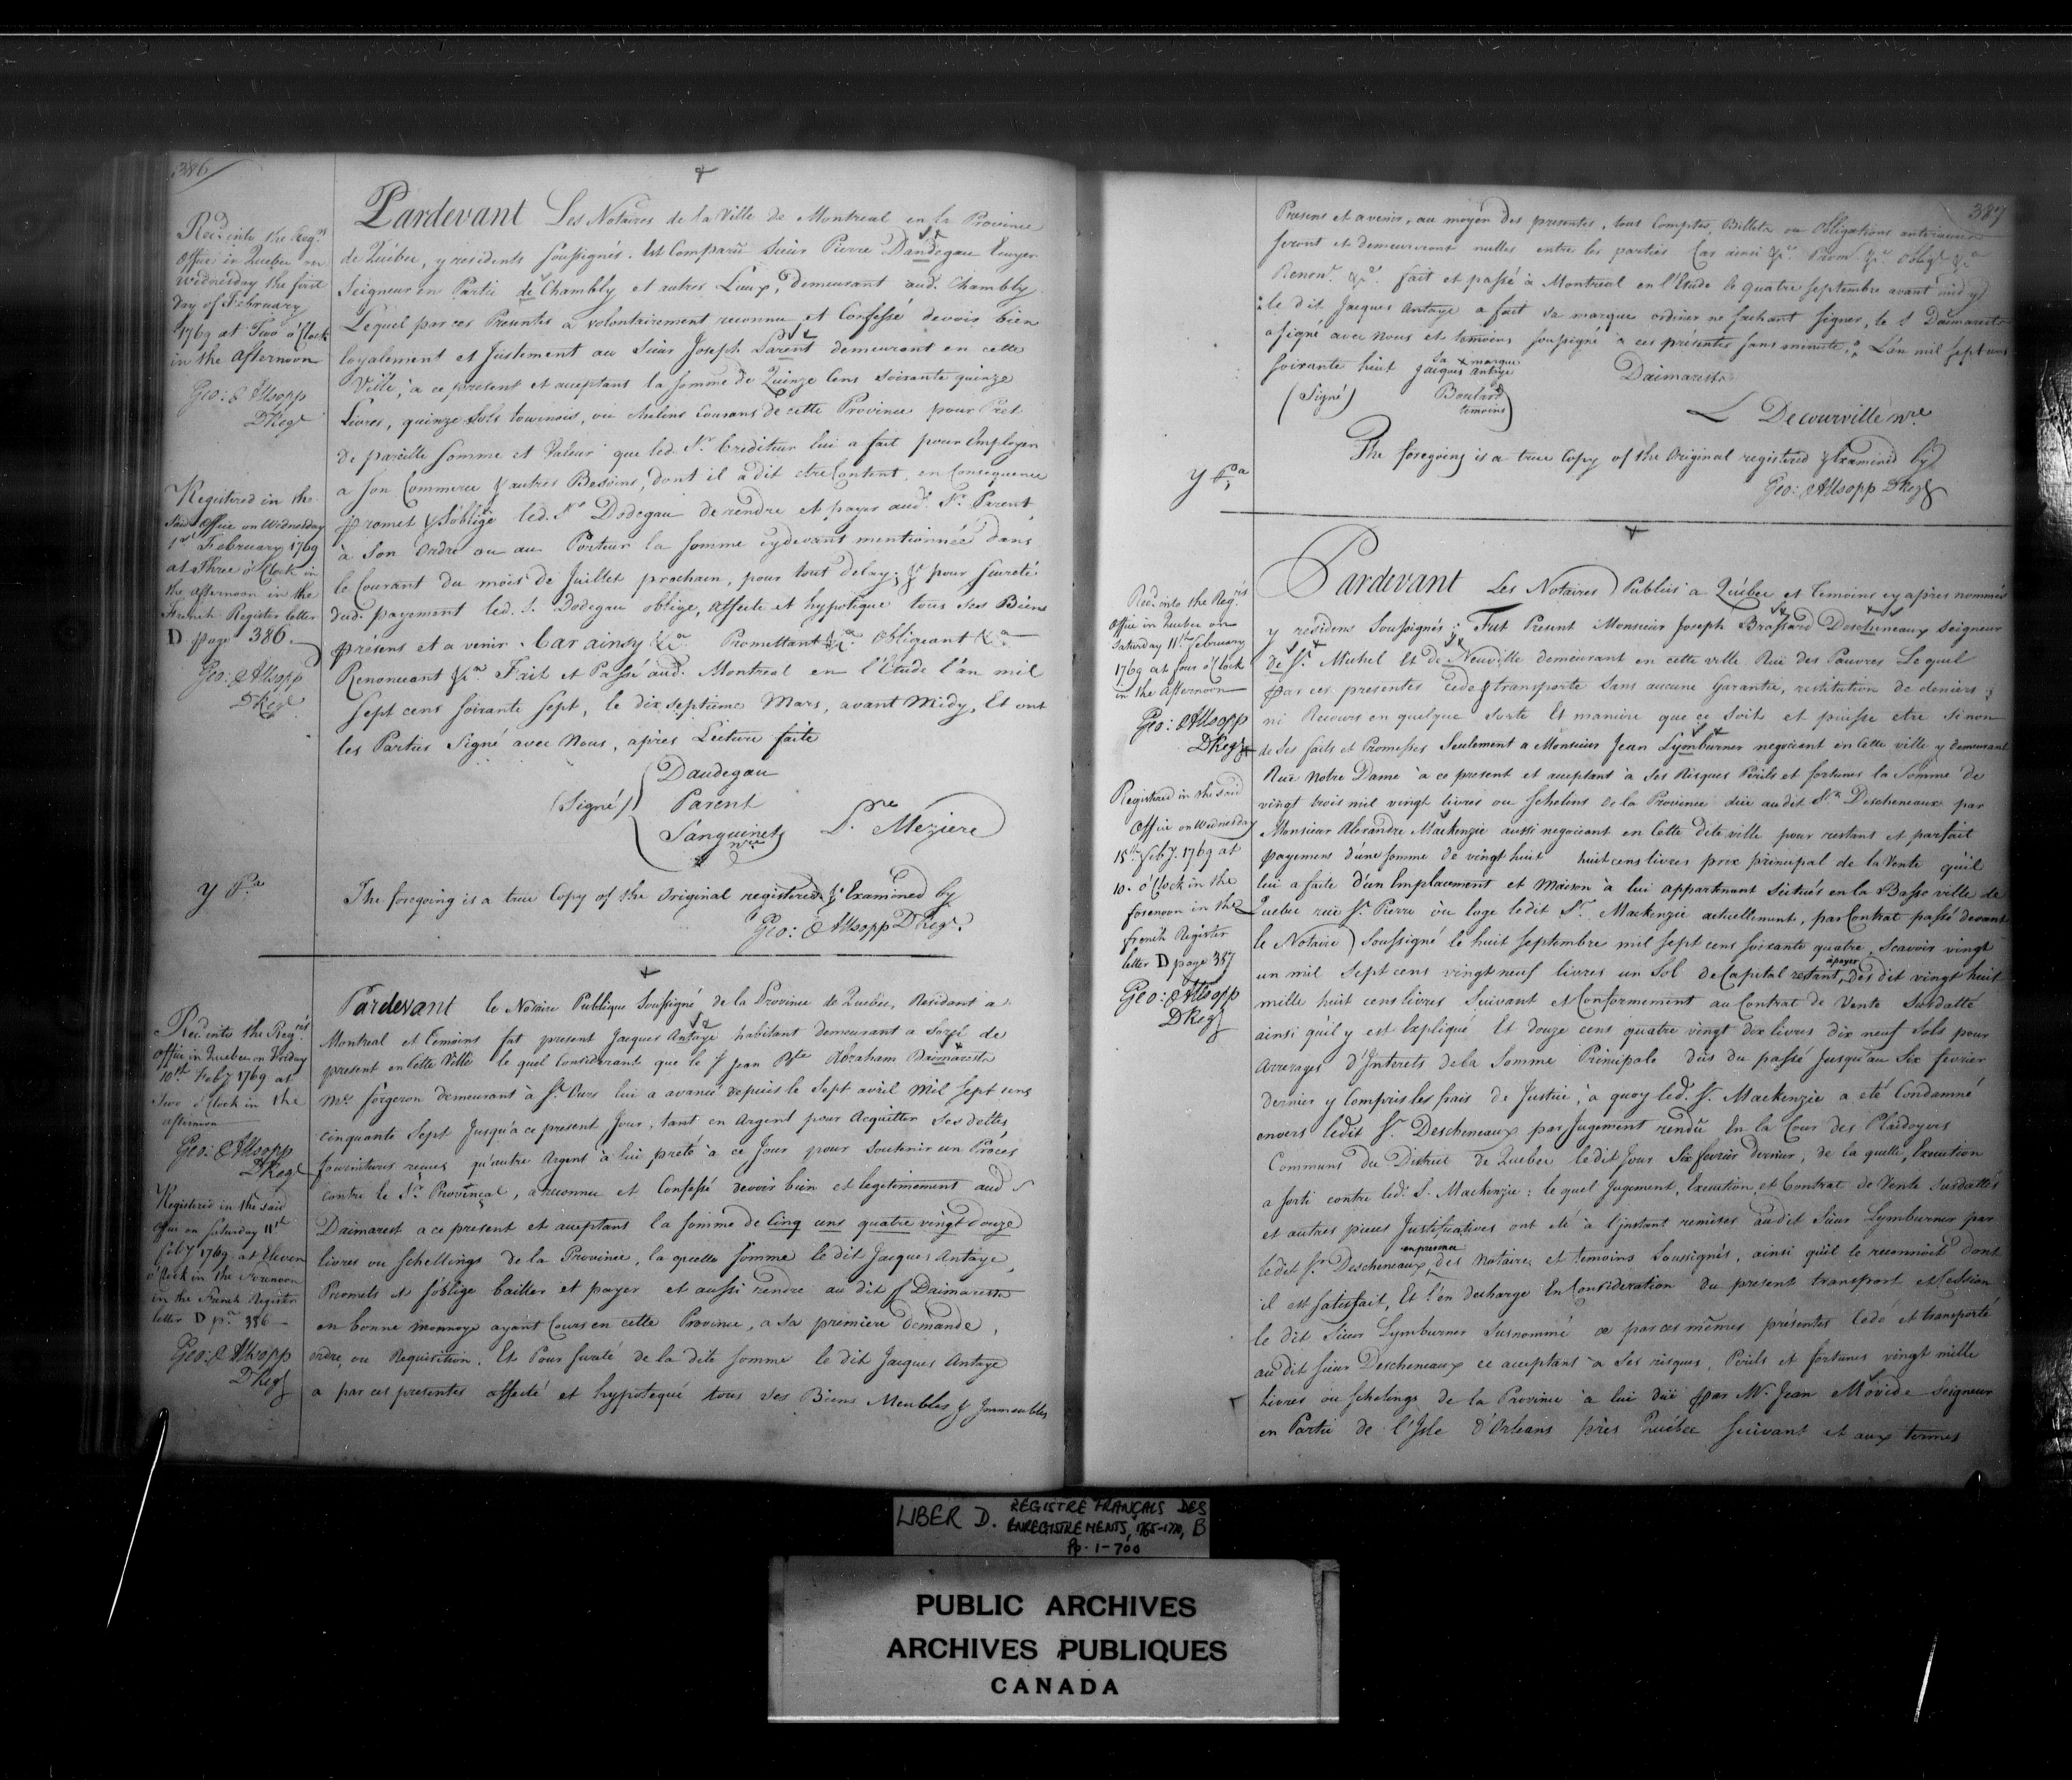 386
Recd into the Regrs
Office in Quebec on
Wednesday the first
Day of February
1769 at Two o'Clock
in the afternoon
Geo: Allsopp
DRegr
Registered in the
Said Office on Wednesday
1st February 1769
at Three o'Clock in
the afternoon in the
French Register letter
D page 386.
Geo: Allsopp
DRegr
Pardevant Les Notaires de la Ville de Montreal en la Province
de Québec, y residents soussignés. Est Comparu Sieur Pierre Dandegau Ecuyer
Seigneur en Partie de Chambly et autres Lieux, demeurant aud. Chambly
Lequel par ces Presentes a volontairement reconnu et Confessé devoir bien
loyalement et Justement au Sieur Joseph Parent demeurant en cette
Ville, à ce present et acceptans la somme de Quinze Cens Soixante quinze
Livres, quinze Sols tournois, ou chelins Courans de cette Province pour Pret
de pareille Somme et Valeur que led. Sr. Crediteur lui a fait pour Employer
a son Commerce & autres Besoins, dont il a dit etre Content, en Consequence
promet & s'oblige led. Sr Dodegau de rendre et payer aud. Sr. Parent
à Son Ordre ou au Porteur la Somme cydevant mentionnée dans
le Courant du mois de Juillet prochain, pour tout delay; & pour sureté
dud. payement led. S. Dodegau oblige, affecte et hypotique tous ses Biens
présens et a venir. Car ainsy &ca Promettant &ca Obligeant &ca
Renoncant &ca Fait et Passé aud. Montreal en l'Etude l'an mil
Sept cens Soixante Sept, le dix Septieme Mars, avant Midy, Et ont
les Parties Signé avec Nous, après Lecture faite
(Signé) Daudegau
Parent
Sanguinet
nre
P. Meziere nre
The foregoing is a true Copy of the Original registered & Examined by
Geo: Allsopp DRegr.
Recd into the Regrs
Office in Quebec on Friday
10th Feby 1769 at
Two o'Clock in the
afternoon
Geo: Allsopp
DRegr
Registered in the said
Office on Saturday 11th
Feby 1769 at Eleven
o'Clock in the Forenoon
in the French Register
letter D pa. 386
Geo: Allsopp
DRegr
Pardevant le Notaire Publique Soussigné de la Province de Quebec, Residant a
Montreal et temoins fut present Jacques Antaye habitant demeurant a Sorel de
present en cette Ville le quel Considerant que le S Jean Bte Abraham Daimareste
Me. forgeron demeurant à St. Ours lui a avancé depuis le Sept avril Mil Sept cens
cinquante Sept Jusqu'à ce present Jour, tant en Argent pour Acquitter Ses dettes
fournitures recues, qu'autre Argent à lui preté à ce Jour pour Soutenir un Procès
contre le Sr. Provençal, a reconnu et Confessé devoir bien et legitimement aud S
Daimarest a ce present et acceptans la somme de Cinq cens quatre vingt douze
livres ou schellings de la Province, la quelle Somme le dit Jacques Antaye,
Promets et s'oblige bailler et payer et aussi rendre au dit S Daimareste
en bonne monnoye ayant Cours en cette Province, a Sa premiere demande,
ordre ou Requisition. Et Pour sureté de la dite Somme le dit Jacques Antaye
a par ces presentes affecté et hypotequé tous ses Biens Meubles & Immeubles
387
Presens et avenir, au moyen des presentes, tous Comptes, Billets ou Obligations anterieures
seront et demeureront nulles entre les parties Car ainsi &ca. Prom &ca. Oblig &ca
Renonc. &ca. fait et passé à Montreal en l'Etude le quatre Septembre avant midy
le dit Jacques Antaye a fait sa marque ordinre ne sachant Signer, le S Daimareste
a signé avec Nous et temoins soussigné à ces présentes sans minute, L'an mil Sept cens
Soixante huit
Sa x marque
Jacques Antaye
Daimareste
(Signé) Boulard
temoins
L Decourville nre
The foregoing is a true Copy of the Original registered & Examined by
Geo: Allsopp DRegr
Recd into the Regrs
Office in Quebec on
Saturday 11th February
1769 at four o'Clock
in the afternoon
Geo: Allsopp
DRegr
Registered in the said
Office on Wednesday
15th Feby. 1769 at
10. o'Clock in the
forenoon in the
french Register
letter D page 387
Geo: Allsopp
DRegr
Pardevant Les Notaires Publics à Québec et temoins cy après nommés
y residens Soussignés; Fut Present Monsieur Joseph Brassard Descheneaux Seigneur
de St. Michel Et de Neuville demeurant en cette ville Rüe des Pauvres Lequel
par ces presentes cede & transporte Sans aucune Garantie, restitution de deniers
ni Recours en quelque Sorte Et maniere que ce Soit et puisse etre Si non
de Ses faits et Promesses Seulement a Monsieur Jean Lymburner negociant en Cette ville y demeurant
Rüe Notre Dame à ce present et acceptant à Ses Risques Périls et fortunes la Somme de
vingt trois mil vingt livres ou Schelins de la Province düe audit Sr. Descheneaux par
Monsieur Alexandre Mackenzie aussi negociant en Cette dite ville pour restant et parfait
payement d'une Somme de vingt huit huit cens livres prix principal de la Vente qu'il
lui a faite d'un Emplacement et Maison à lui appartenant Scitués en la Basse ville de
Quebec rüe St. Pierre ou loge ledit Sr. Mackenzie actuellement, par Contrat passé devant
le Notaire Soussigné le huit Septembre mil Sept cens Soixante quatre, Scavoir vingt
un mil Sept cens vingt neuf livres un Sol de Capital restant à payer, des dit vingt huit
mille huit cens livres Suivant et Conformement au Contrat de Vente Susdatté
ainsi qu'il y est Expliqué Et douze cens quatre vingt dix livres dix neuf Sols pour
Arrerages d'Interets de la Somme Principale dus du passé Jusqu'au Six fevrier
dernier y Compris les frais de Justice, à quoy led. S. Mackenzie a été Condamné
envers ledit Sr. Descheneaux par Jugement rendü En la Cour des Plaidoyers
Communs du District de Quebec ledit Jour Six fevrier dernier, de la quelle, Execution
a sorti contre led. S. Mackenzie: le quel Jugement, Execution, et Contrat de Vente Susdattés
et autres pieces Justificatives ont été à l'instant remises audit Sieur Lymburner par
ledit Sr. Descheneaux, en presence des Notaires et temoins Soussignés, ainsi qu'il le reconnoit dont
il est Satisfait, Et l'en decharge En Consideration du present transport et Cession
le dit Sieur Lymburner Susnommé a par ces mêmes présentes Cedé et transporté
au dit Sieur Descheneaux ce acceptant à Ses risques, Perils et fortunes vingt mille
Livres ou Schelings de la Province à lui düe par Mr. Jean Movide Seigneur
en Partie de l'Isle d'Orleans près Québec Suivant et aux termes
LIBER D. REGISTRE FRANÇAIS DES
ENREGISTREMENTS, 1765-1770, B
Pp. 1-700
PUBLIC ARCHIVES
ARCHIVES PUBLIQUES
CANADA